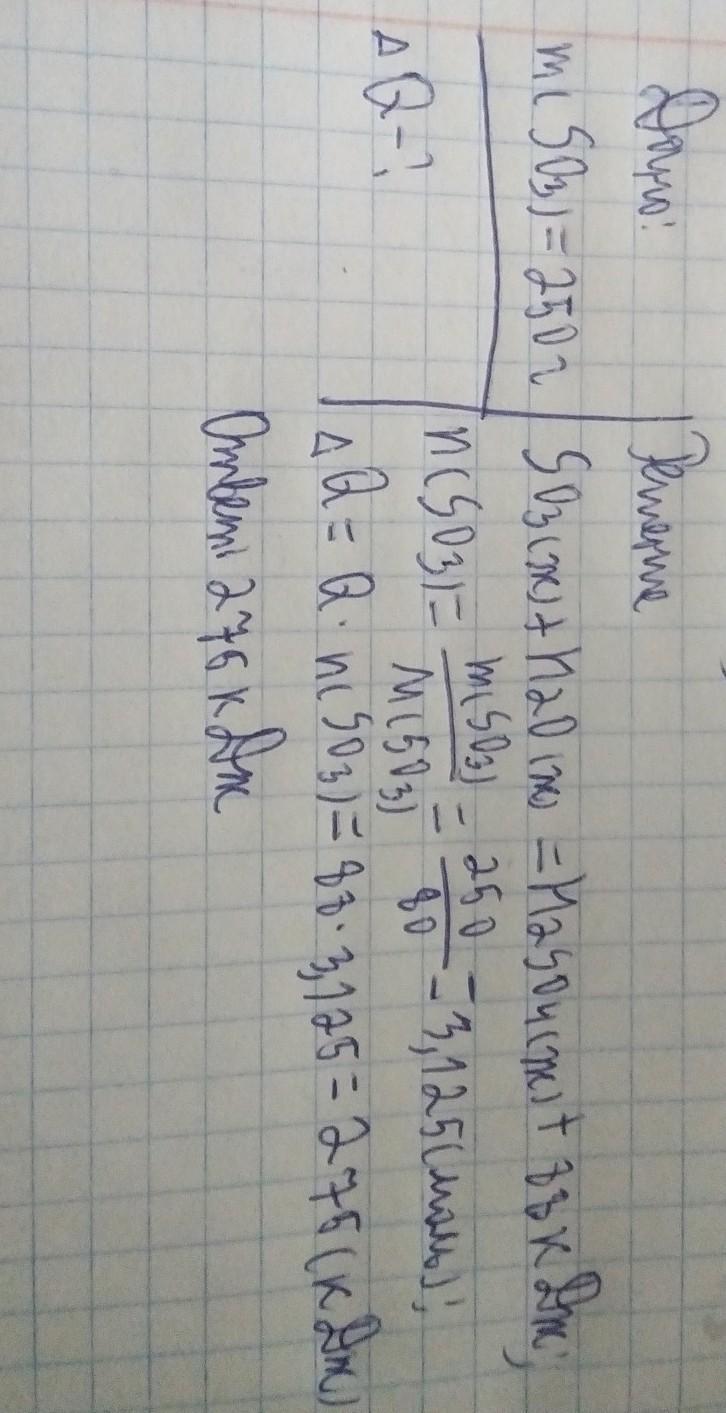 Дано:
m(SO3)=250г
ΔQ-?
Решение
SO3(ж)+H2O(ж)=H2SO4(ж)+88кДж;
n(SO3)=m(SO3)/M(SO3)=250/80=3,125(моль);
ΔQ=Q·n(SO3)=88·3,125=275(кДж)
Ответ: 275кДж